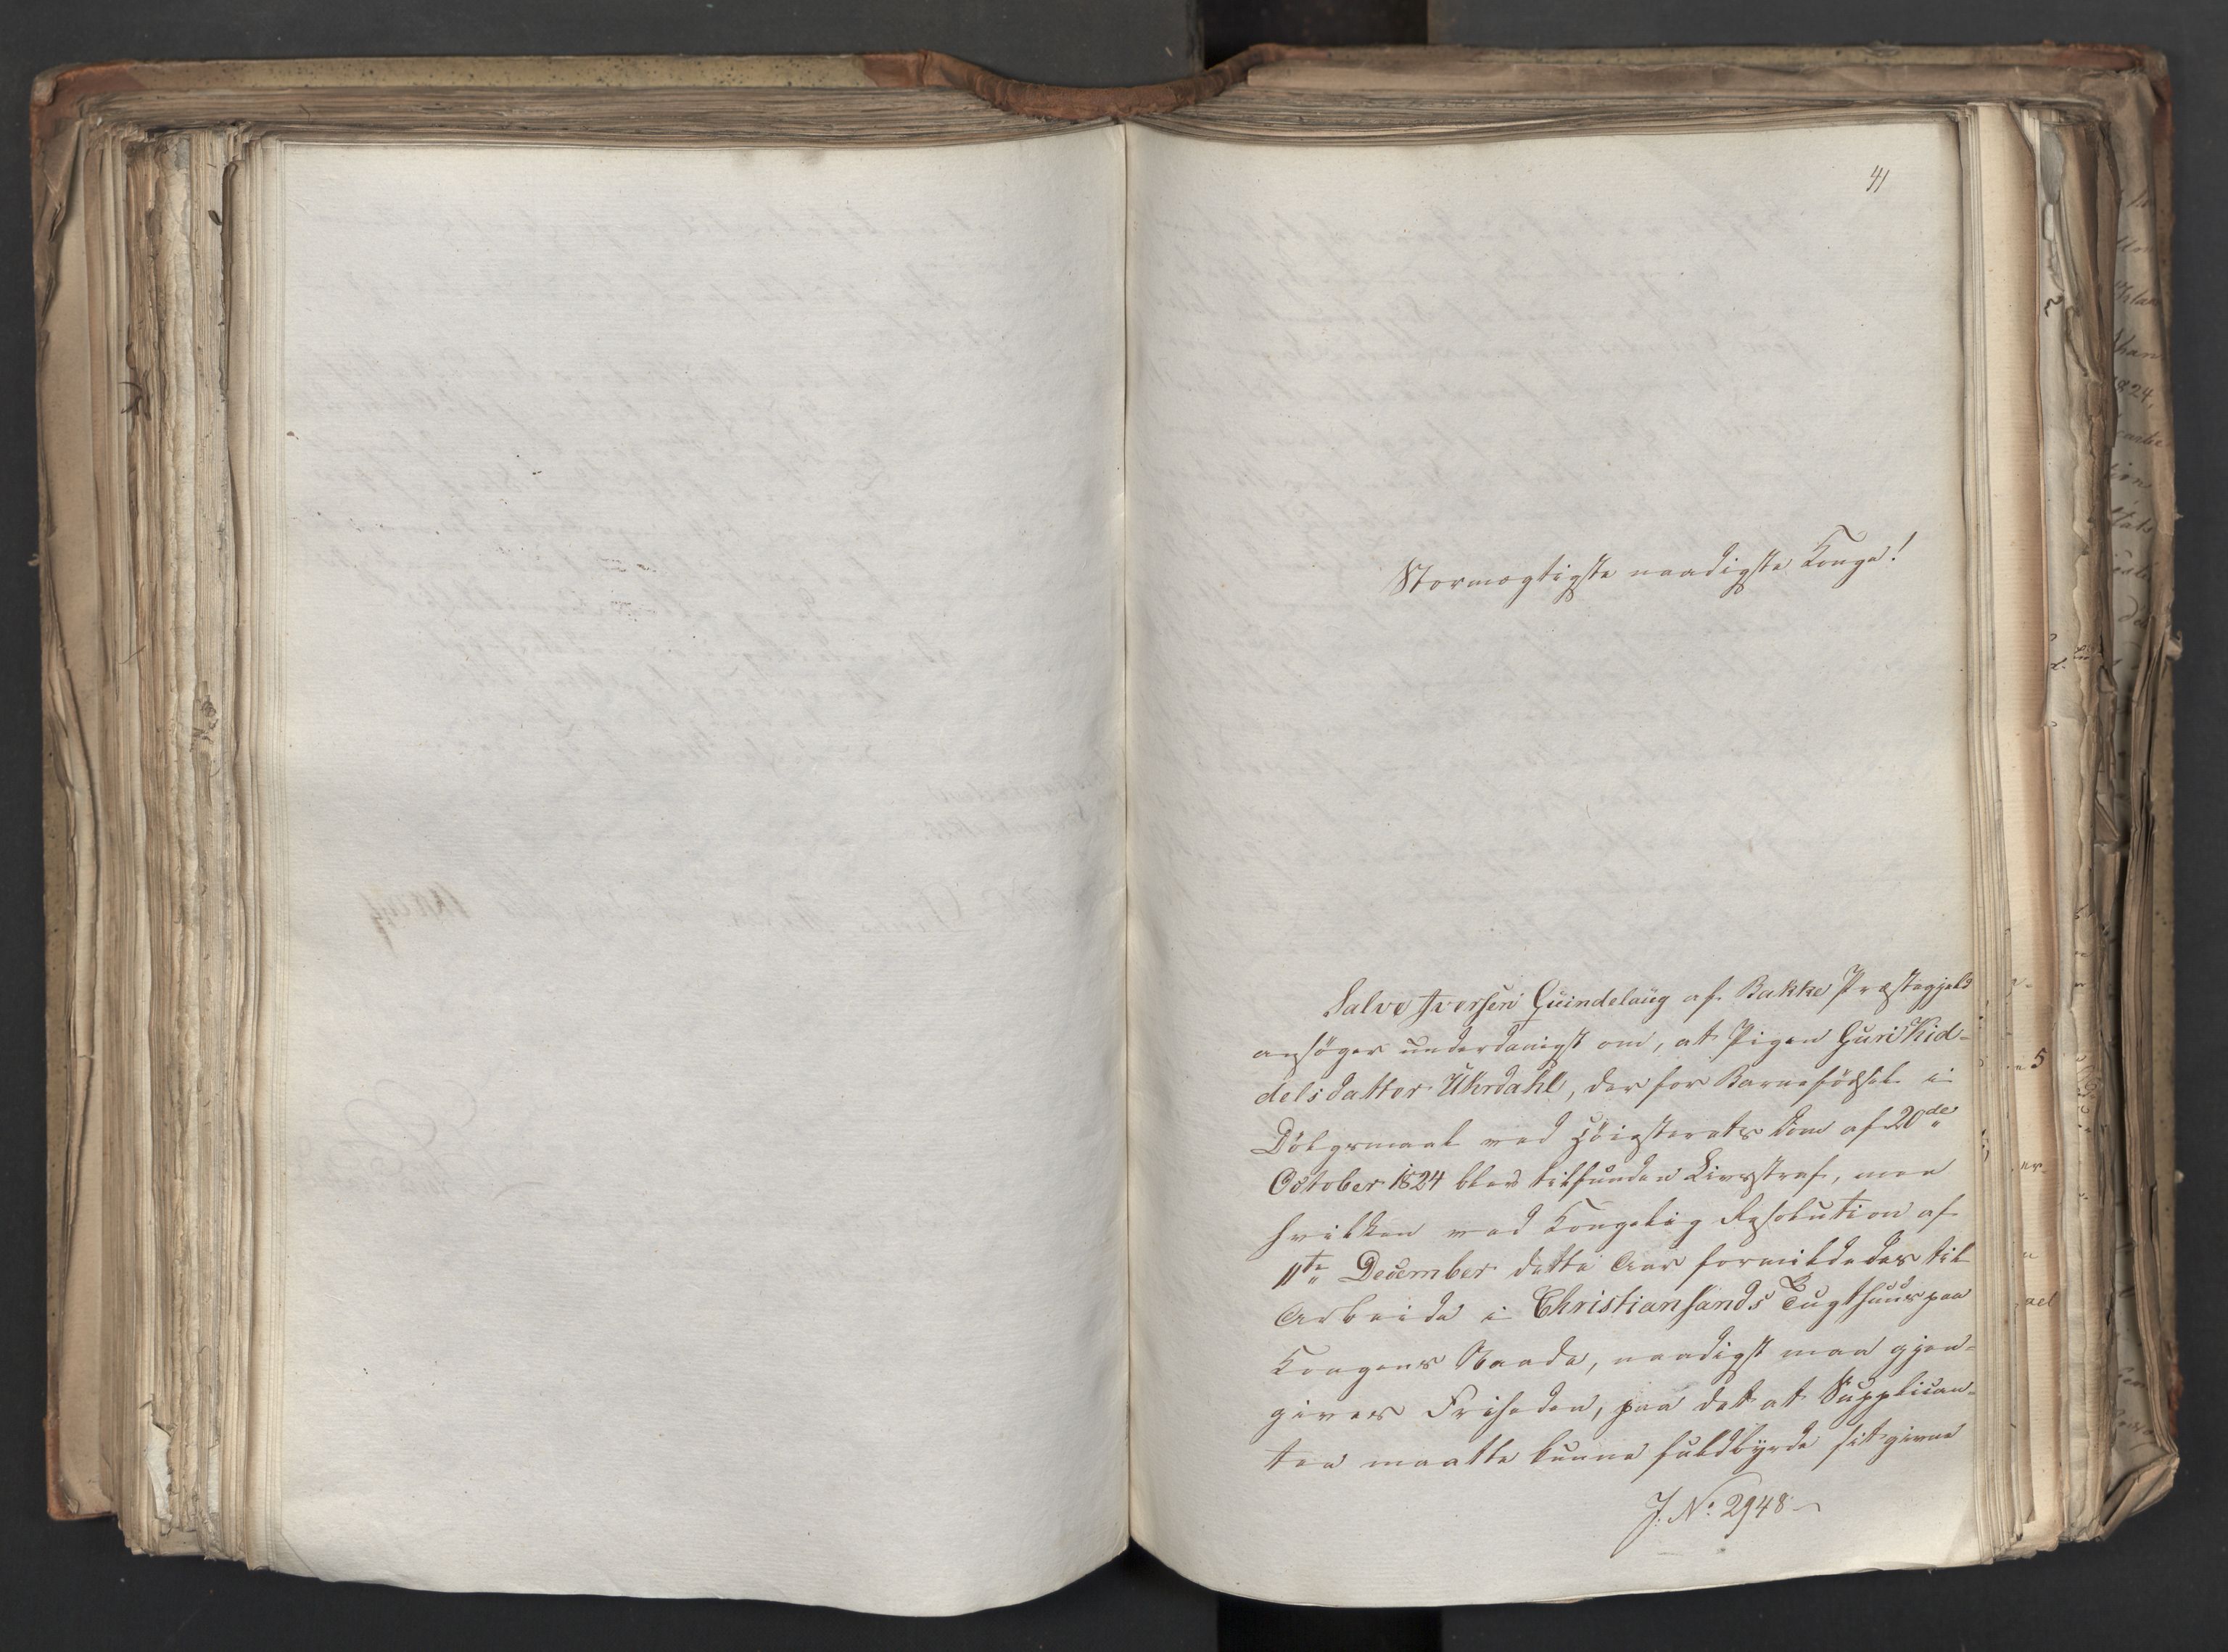 41
Stormægtigste naadigste Konge!
Salve Iversen Guindelaug af Bakke Præstegjeld
ansøger underdanigst om, at Pigen Guri Kid-
delsdatter Uhrdahl, der for Barnefødsel i
Dølgsmaal ved Høiesterets Dom af 20de
October 1824 blev tilfunden Livsstraf, men
hvilken ved Kongelig Resolution af
11te December dette Aar formildedes til
Arbeide i Christiansands Tugthuus paa
Kongens Naade, naadigst maa gjen-
gives Friheden, paa det at Supplican-
ten maatte kunne fuldbyrde sit givne
J. No: 2948